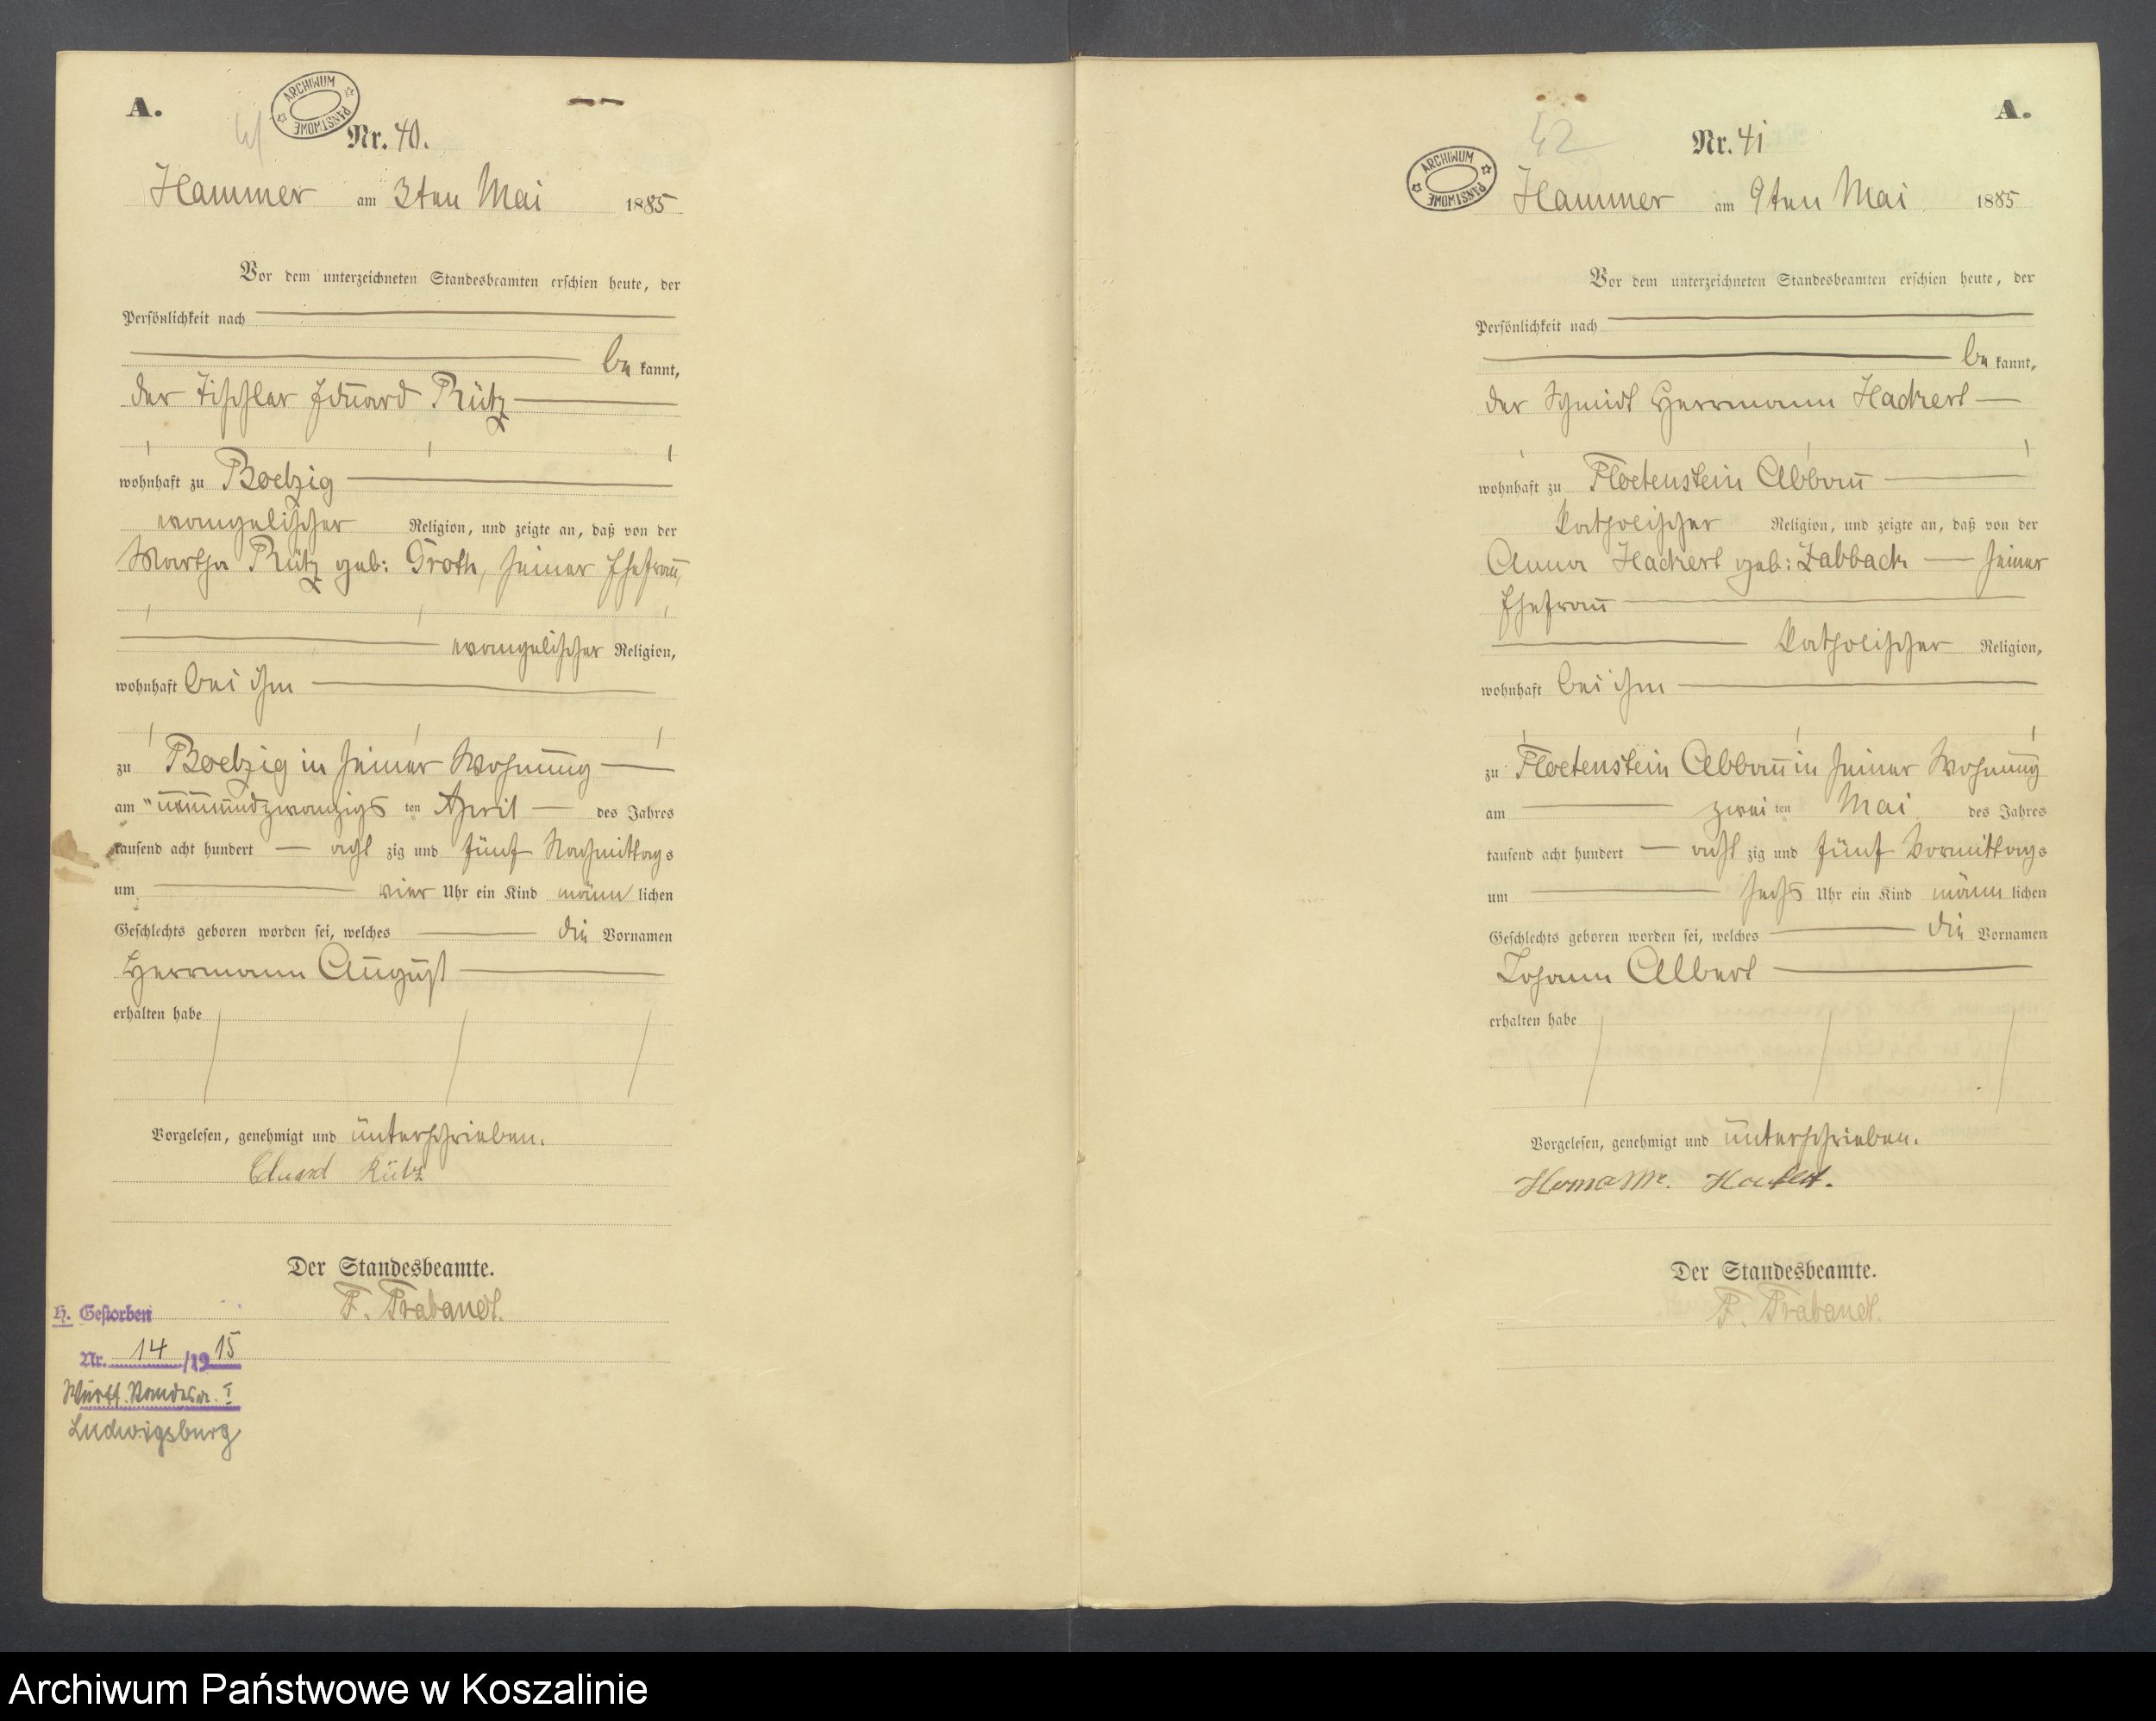 A.
41
ARCHIWUM PAŃSTWOWE
Nr. 40.
Hammer am 3ten Mai 1885
Vor dem unterzeichneten Standesbeamten erschien heute, der
Persönlichkeit nach
be kannt,
der Tischler Eduard Rütz
wohnhaft zu Boelzig
evangelischer Religion, und zeigte an, daß von der
Martha Rütz geb: Groth, seiner Ehefrau,
evangelischer Religion,
wohnhaft bei ihm
zu Boelzig in seiner Wohnung
am neunundzwanzigs ten April des Jahres
tausend acht hundert acht zig und fünf Nachmittags
um vier Uhr ein Kind männ lichen
Geschlechts geboren worden sei, welches die Vornamen
Herrmann August
erhalten habe
Vorgelesen, genehmigt und unterschrieben.
Eduard Rütz
Der Standesbeamte.
F. Brabandt.
H. Gestorben
Nr. 14 /19 15
Württ. Standesa. I
Ludwigsburg
A.
42
Nr. 41
ARCHIWUM PAŃSTWOWE
Hammer am 9ten Mai 1885
Vor dem unterzeichneten Standesbeamten erschien heute, der
Persönlichkeit nach
be kannt,
der Schmidt Herrmann Hackert
wohnhaft zu Floetenstein Abbau
katholischer Religion, und zeigte an, daß von der
Anna Hackert geb: Zabback seiner
Ehefrau
katholischer Religion,
wohnhaft bei ihm
zu Floetenstein Abbau in seiner Wohnung
am zwei ten Mai des Jahres
tausend acht hundert acht zig und fünf Vormittags
um sechs Uhr ein Kind männ lichen
Geschlechts geboren worden sei, welches die Vornamen
Johann Albert
erhalten habe
Vorgelesen, genehmigt und unterschrieben.
Hermann. Hackert.
Der Standesbeamte.
F. Brabandt.
Archiwum Państwowe w Koszalinie